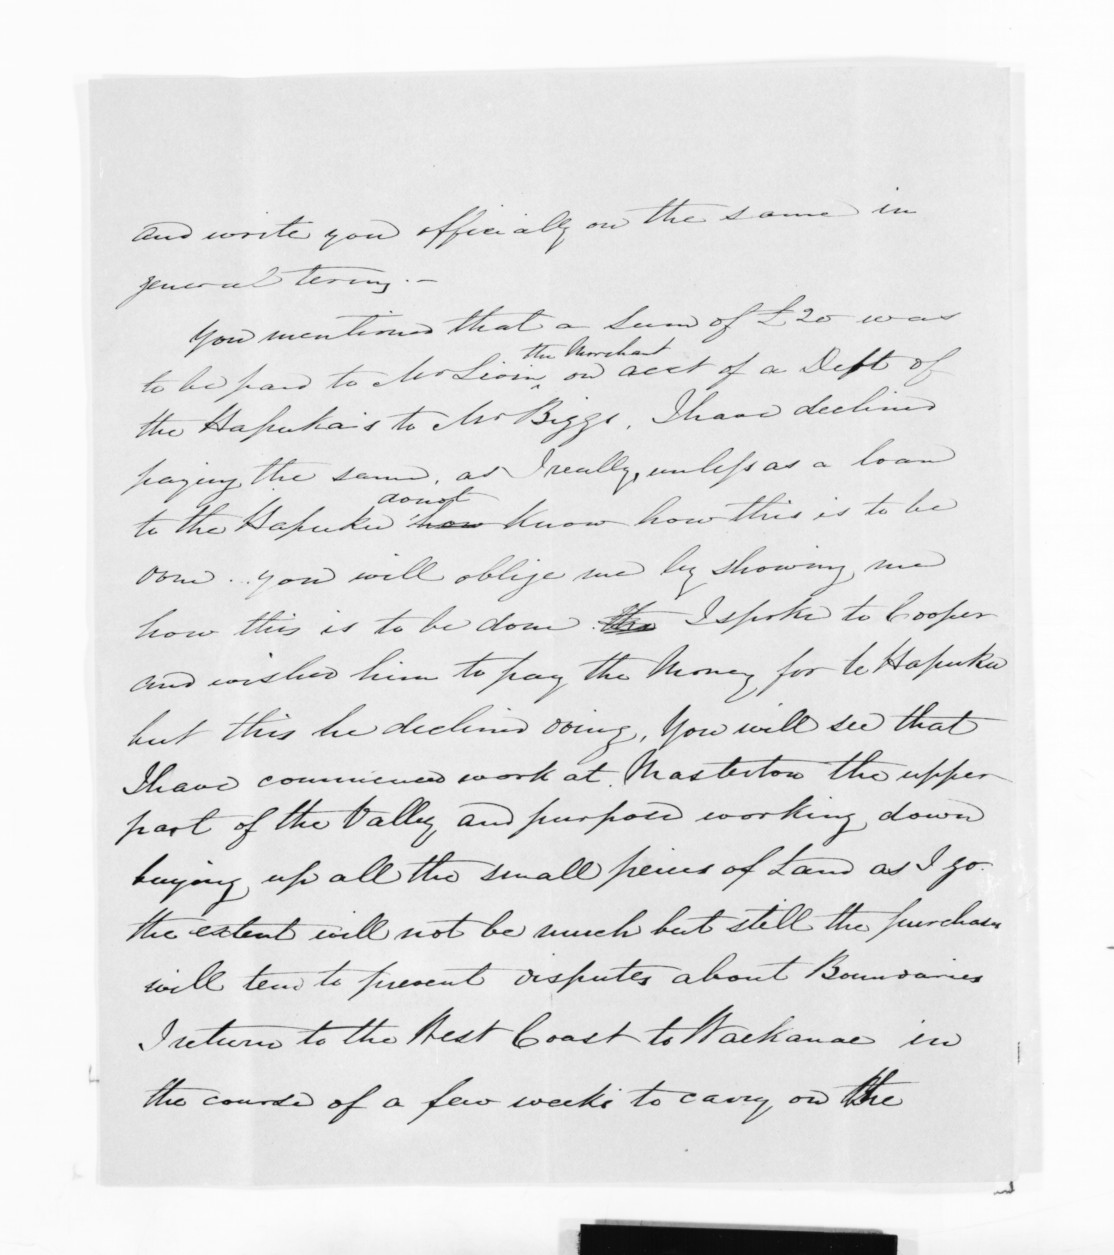 and write you officially on the same in
general terms. —
You mentioned that a Sum of £20 was
the Merchant
to be paid to Mr Levin on acct of a Debt of
the Hapuka's to Mr Biggs, I have declined
paying the same, as I really, unless as a loan
do not
to the Hapuku how know how this is to be
done .. you will oblige me by showing me
how this is to be done. the I spoke to Cooper
and wished him to pay the Money for te Hapuku
but this he declined doing, You will see that
I have commenced work at Masterton the upper
part of the Valley and purpose working down
buying up all the small pieces of Land as I go.
the extent will not be much but still the purchases
will tend to prevent disputes about Boundaries
I return to the West Coast to Waekanae in
the course of a few weeks to carry on the